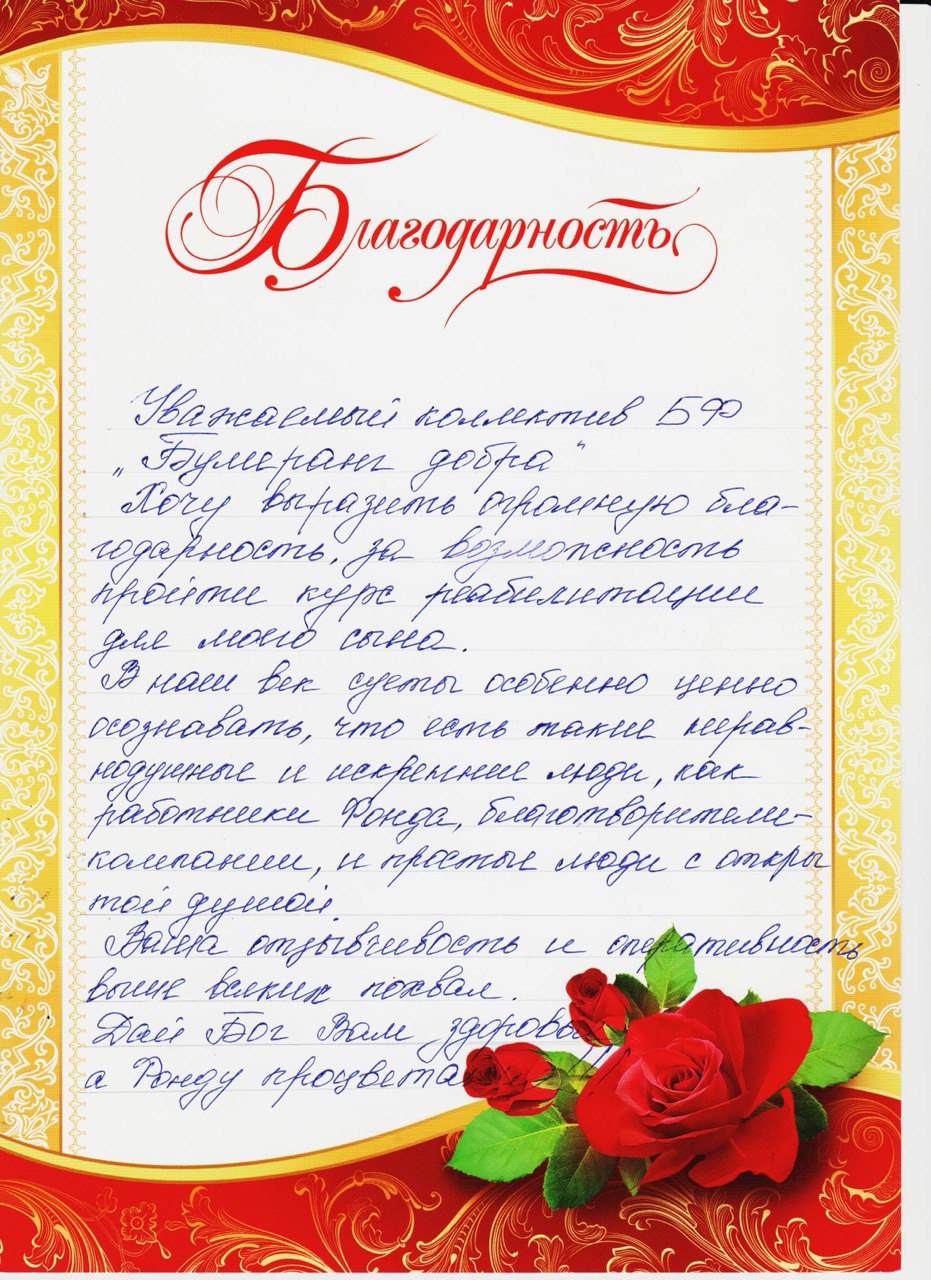 Благодарность
Уважаемый коллектив БФ
„Бумеранг добра"
Хочу выразить огромную бла-
годарность, за возможность
пройти курс реабилитации
для моего сына.
В наш век суеты особенно ценно
осознавать, что есть такие нерав-
нодушные и искренние люди, как
работники Фонда, благотворители-
компании, и простые люди с откры
той душой.
Ваша отзывчивость и оперативность
выше всяких похвал.
Дай Бог Вам здоровь
а Фонду процвета